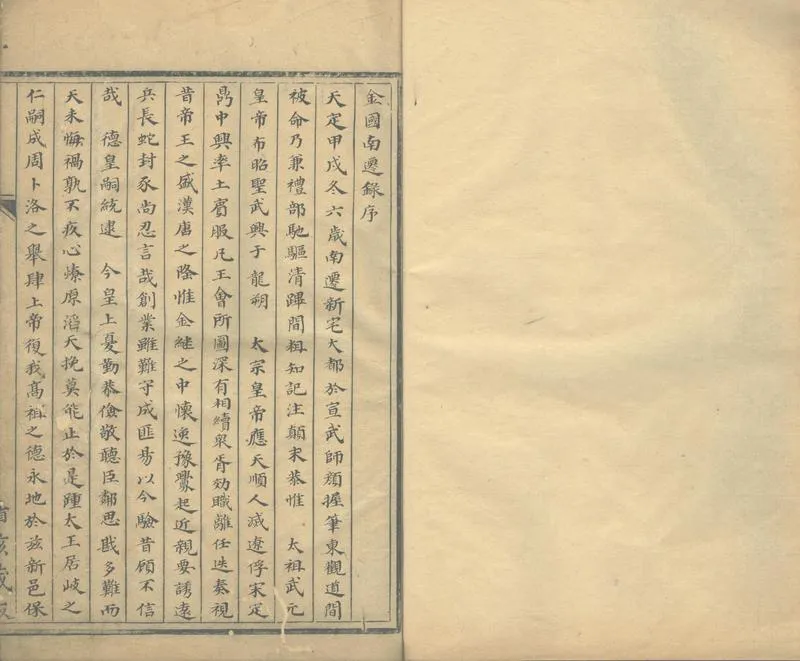 金國南遷錄序
天定甲戌冬六歲南遷新宅大都於宣武師顏握筆東觀道間
被命乃兼禮部馳驅清蹕間粗知記注顛末恭惟　太祖武元
皇帝布昭聖武興于龍朔　太宗皇帝應天順人滅遼俘宋定
鼎中興率土賓服凡王會所圖深有相續眾胥効職離任迭奏視
昔帝王之盛漢唐之隆惟金継之中懷逸豫釁起近親要誘遠
兵長蛇封豕尚忍言哉創業雖難守成匪易以今驗昔顧不信
哉　德皇嗣統逮　今皇上憂勤恭儉敬聽臣鄰思戡多難而
天未悔禍孰不疚心燎原滔天挽莫能止於是踵太王居岐之
仁嗣成周卜洛之舉肆上帝復我高祖之德永地於茲新邑保